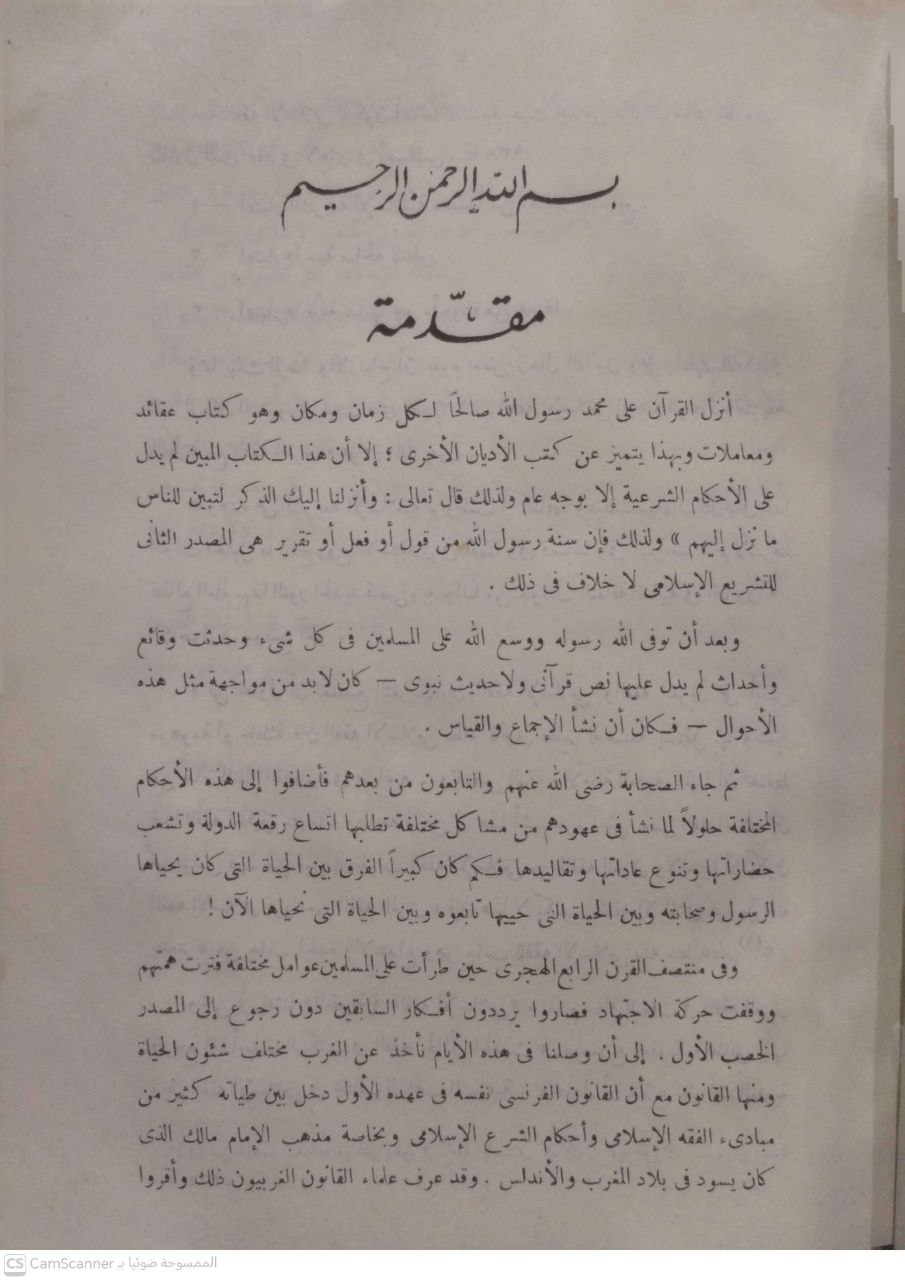 بسم الله الرحمن الرحيم
مقدّمة
أنزل القرآن على محمد رسول الله صالحًا لكل زمان ومكان وهو كتاب عقائد
ومعاملات وبهذا يتميز عن كتب الأديان الأخرى ؛ إلا أن هذا الكتاب المبين لم يدل
على الأحكام الشرعية إلا بوجه عام ولذلك قال تعالى : وأنزلنا إليك الذكر لتبين للناس
ما نزل إليهم » ولذلك فإن سنة رسول الله من قول أو فعل أو تقرير هى المصدر الثانى
للتشريع الإسلامى لا خلاف فى ذلك .
وبعد أن توفى الله رسوله ووسع الله على المسلمين فى كل شىء وحدثت وقائع
وأحداث لم يدل عليها نص قرآنى ولاحديث نبوى — كان لابد من مواجهة مثل هذه
الأحوال — فكان أن نشأ الإجماع والقياس .
ثم جاء الصحابة رضى الله عنهم والتابعون من بعدهم فأضافوا إلى هذه الأحكام
المختلفة حلولاً لما نشأ فى عهودهم من مشاكل مختلفة تطلبها اتساع رقعة الدولة وتشعب
حضاراتها وتنوع عاداتها وتقاليدها فكم كان كبيراً الفرق بين الحياة التى كان يحياها
الرسول وصحابته وبين الحياة التى حييها تابعوه وبين الحياة التى نحياها الآن !
وفى منتصف القرن الرابع الهجرى حين طرأت على المسلمين عوامل مختلفة فترت همتهم
ووقفت حركة الاجتهاد فصاروا يرددون أفكار السابقين دون رجوع إلى المصدر
الخصب الأول . إلى أن وصلنا فى هذه الأيام نأخذ عن الغرب مختلف شئون الحياة
ومنها القانون مع أن القانون الفرنسى نفسه فى عهده الأول دخل بين طياته كثير من
مبادىء الفقه الإسلامى وأحكام الشرع الإسلامى وبخاصة مذهب الإمام مالك الذى
كان يسود فى بلاد المغرب والأندلس . وقد عرف علماء القانون الغربيون ذلك وأقروا
CS CamScanner الممسوحة ضوئيا بـ